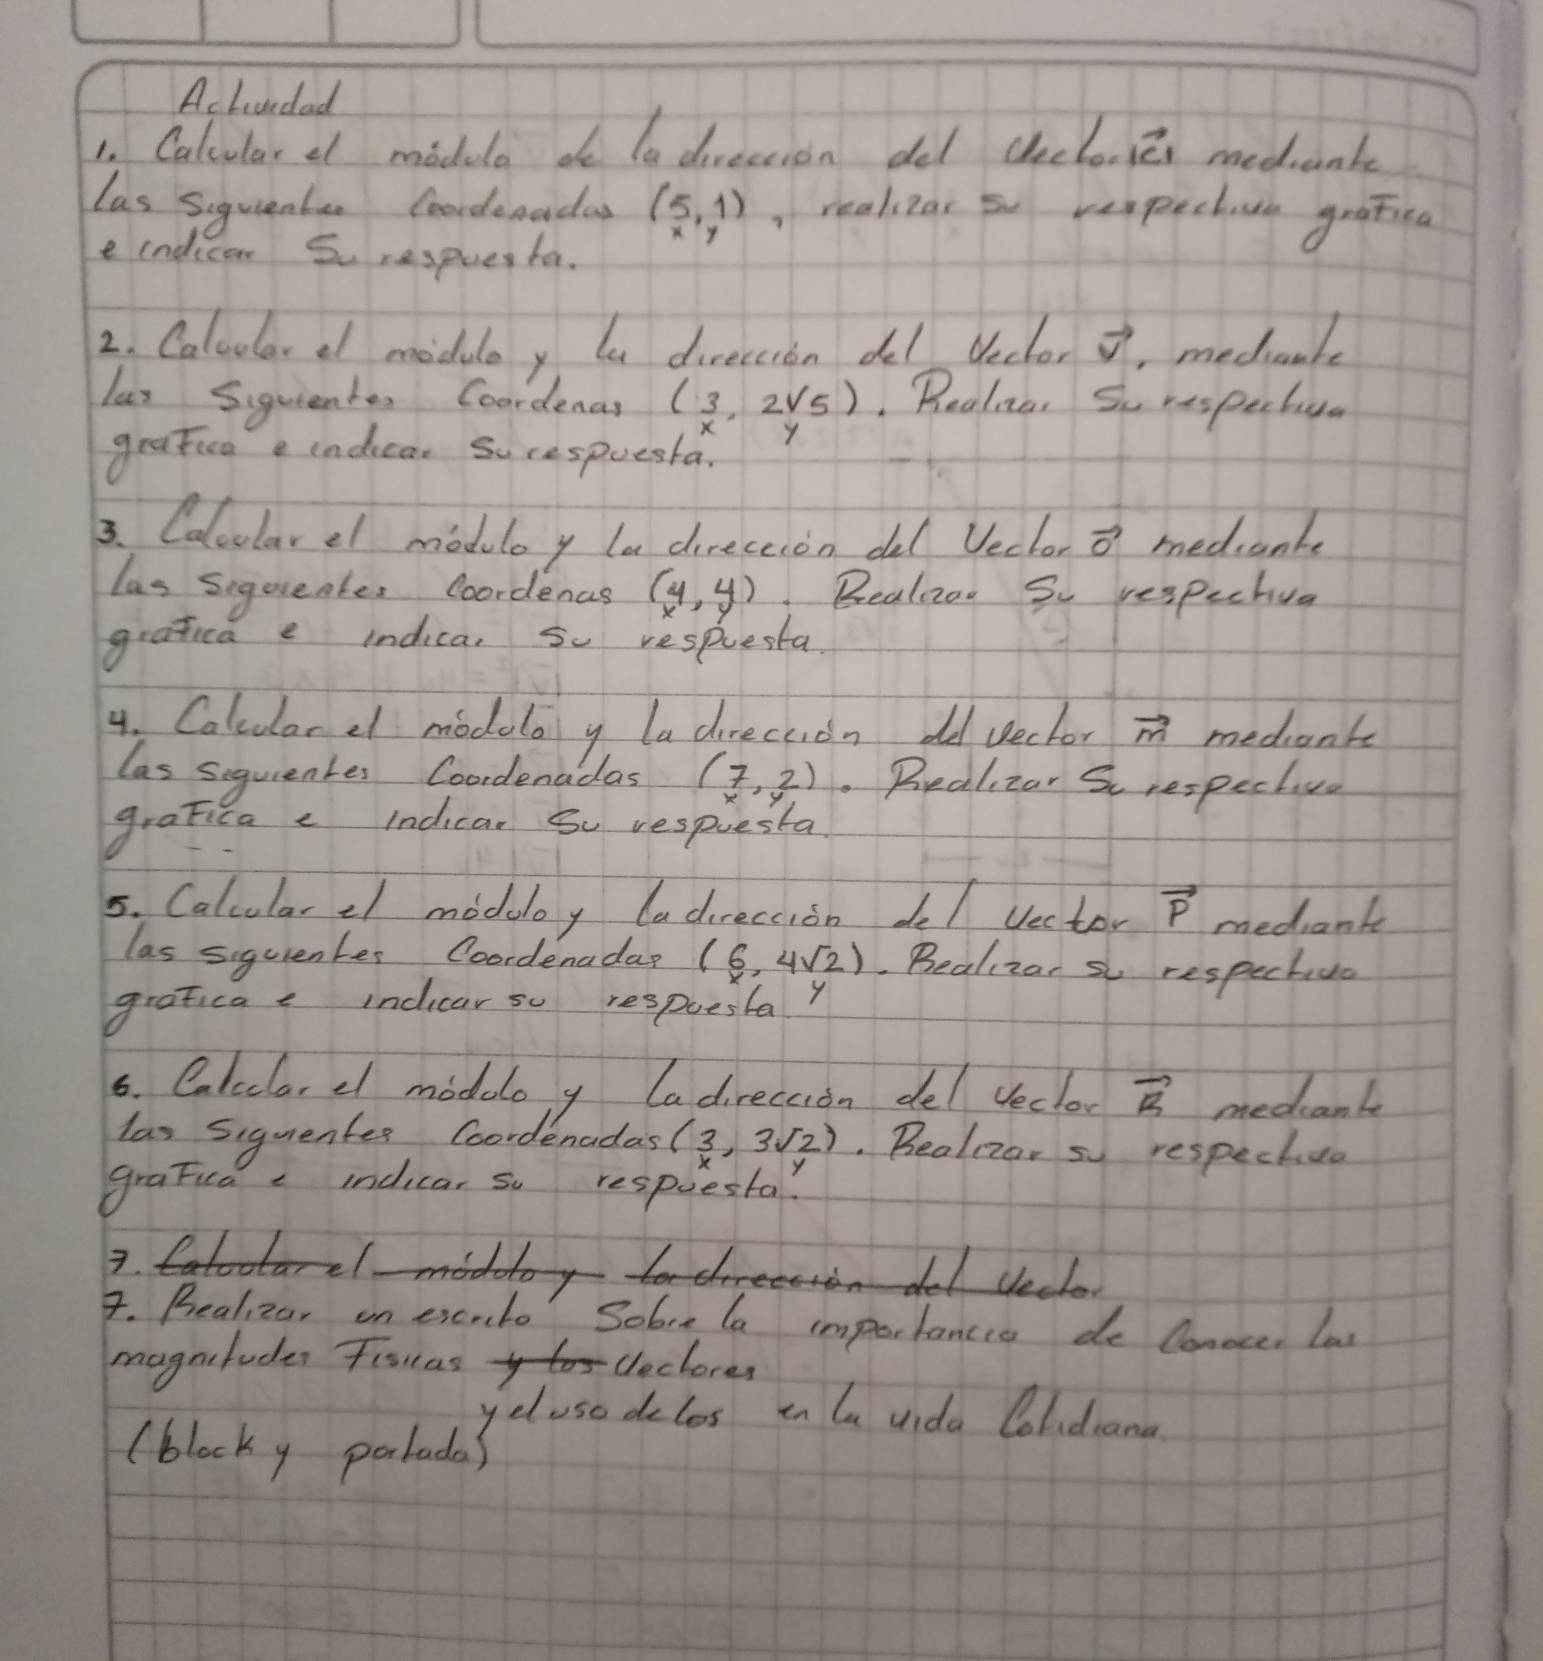 Actividad
1. Calcular el módulo de la dirección del vector |c| mediante
las siguientes coordenadas (5, 1), realizar su respectiva grafica
x y
e indicar su respuesta.
2. Calcular el módulo y la dirección del vector v, mediante
las siguientes coordenas (3, 2√5). Realizar su respectiva
x y
grafica e indicar su respuesta.
3. Calcular el módulo y la dirección del vector o mediante
las siguientes coordenas (4, 4). Realizar su respectiva
x y
grafica e indicar su respuesta.
4. Calcular el módulo y la dirección del vector m mediante
las siguientes coordenadas (7, 2). Realizar su respectiva
x y
grafica e indicar su respuesta.
5. Calcular el módulo y la dirección del vector P mediante
las siguientes coordenadas (6, 4√2). Realizar su respectiva
x y
grafica e indicar su respuesta.
6. Calcular el módulo y la dirección del vector R mediante
las siguientes coordenadas (3, 3√2). Realizar su respectiva
x y
grafica e indicar su respuesta.
7. Calcular el módulo y la dirección del vector
7. Realizar un escrito sobre la importancia de conocer las
magnitudes Fisicas y los vectores
y el uso de los en la vida cotidiana
(block y portada)